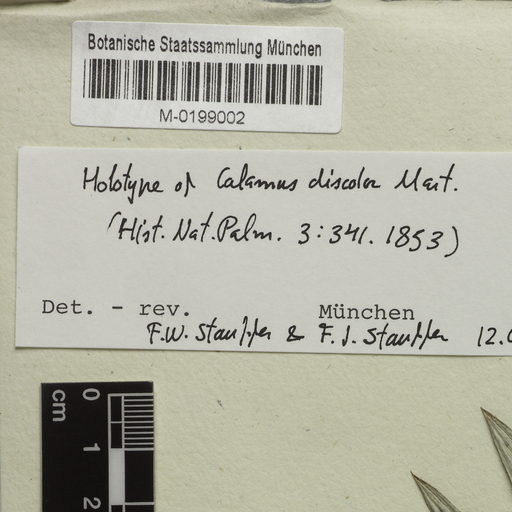 Botanische Staatssammlung München
M-0199002
Holotype of Calamus discolor Mart.
(Hist. Nat. Palm. 3:341. 1853)
Det. - rev. München
F.W. Stauffer & F. J. Stauffer 12.
cm 0 1 2